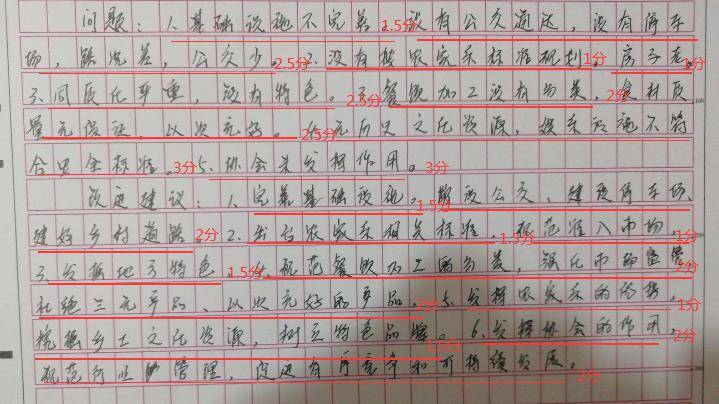 问题：1.基础设施不完善。1.5分没有公交通达，没有停车
场，路况差，公交少。2.5分2.没有按农家乐标准规划。1分房子老。1分
3.同质化严重，没有特色。2.5分3.餐饮加工没有分类，2分食材质
量无保证，以次充好。2.5分 无历史文化资源，娱乐设施不符
合安全标准。3分5.协会未发挥作用。3分
改进建议：1.完善基础设施。1.5分 公交、建设停车场、
建好乡村道路。2分2.出台农家乐相关标准，1.5分规范准入市场，1分
3.发掘地方特色。1.5分4.规范餐饮加工的分类，强化市场监管2分
杜绝三无产品、以次充好的产品，2分5.发挥农家乐的优势，1分
挖掘乡土文化资源，树立特色品牌。6.发挥协会的作用，2分
规范行业管理，促进有序竞争和可持续发展。2分